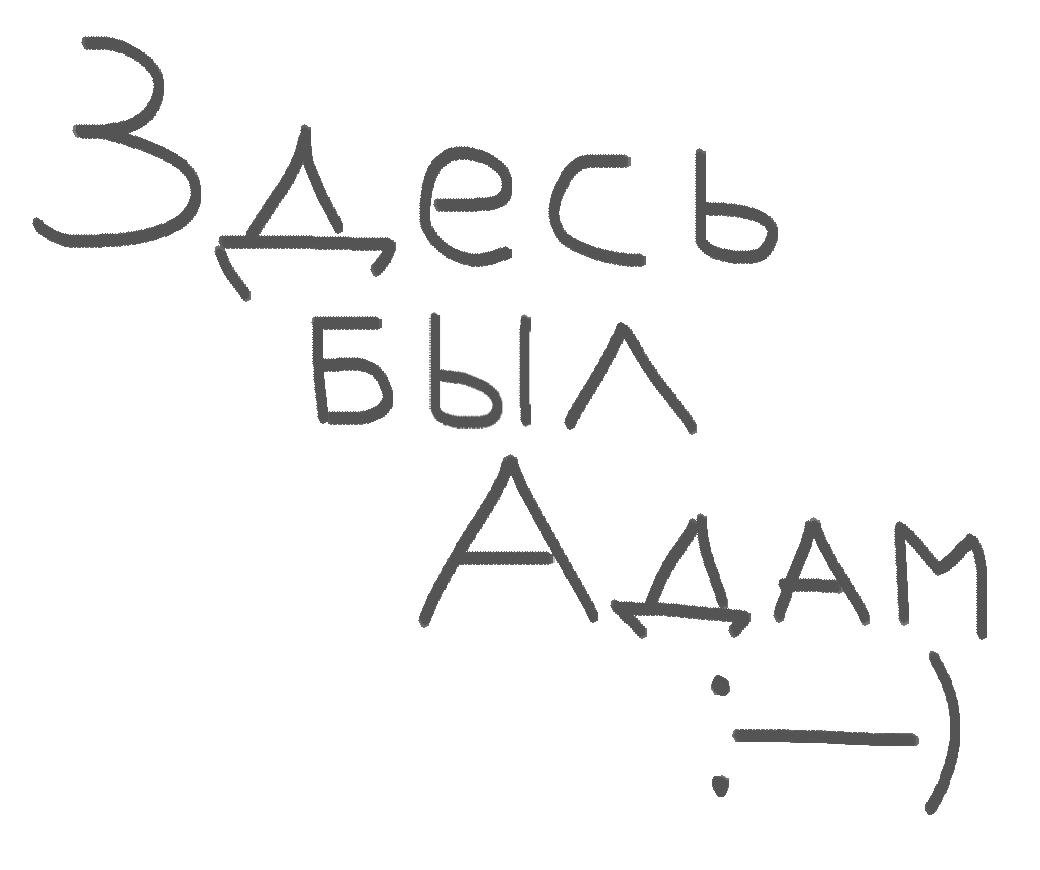 Здесь
был
Адам
:-)